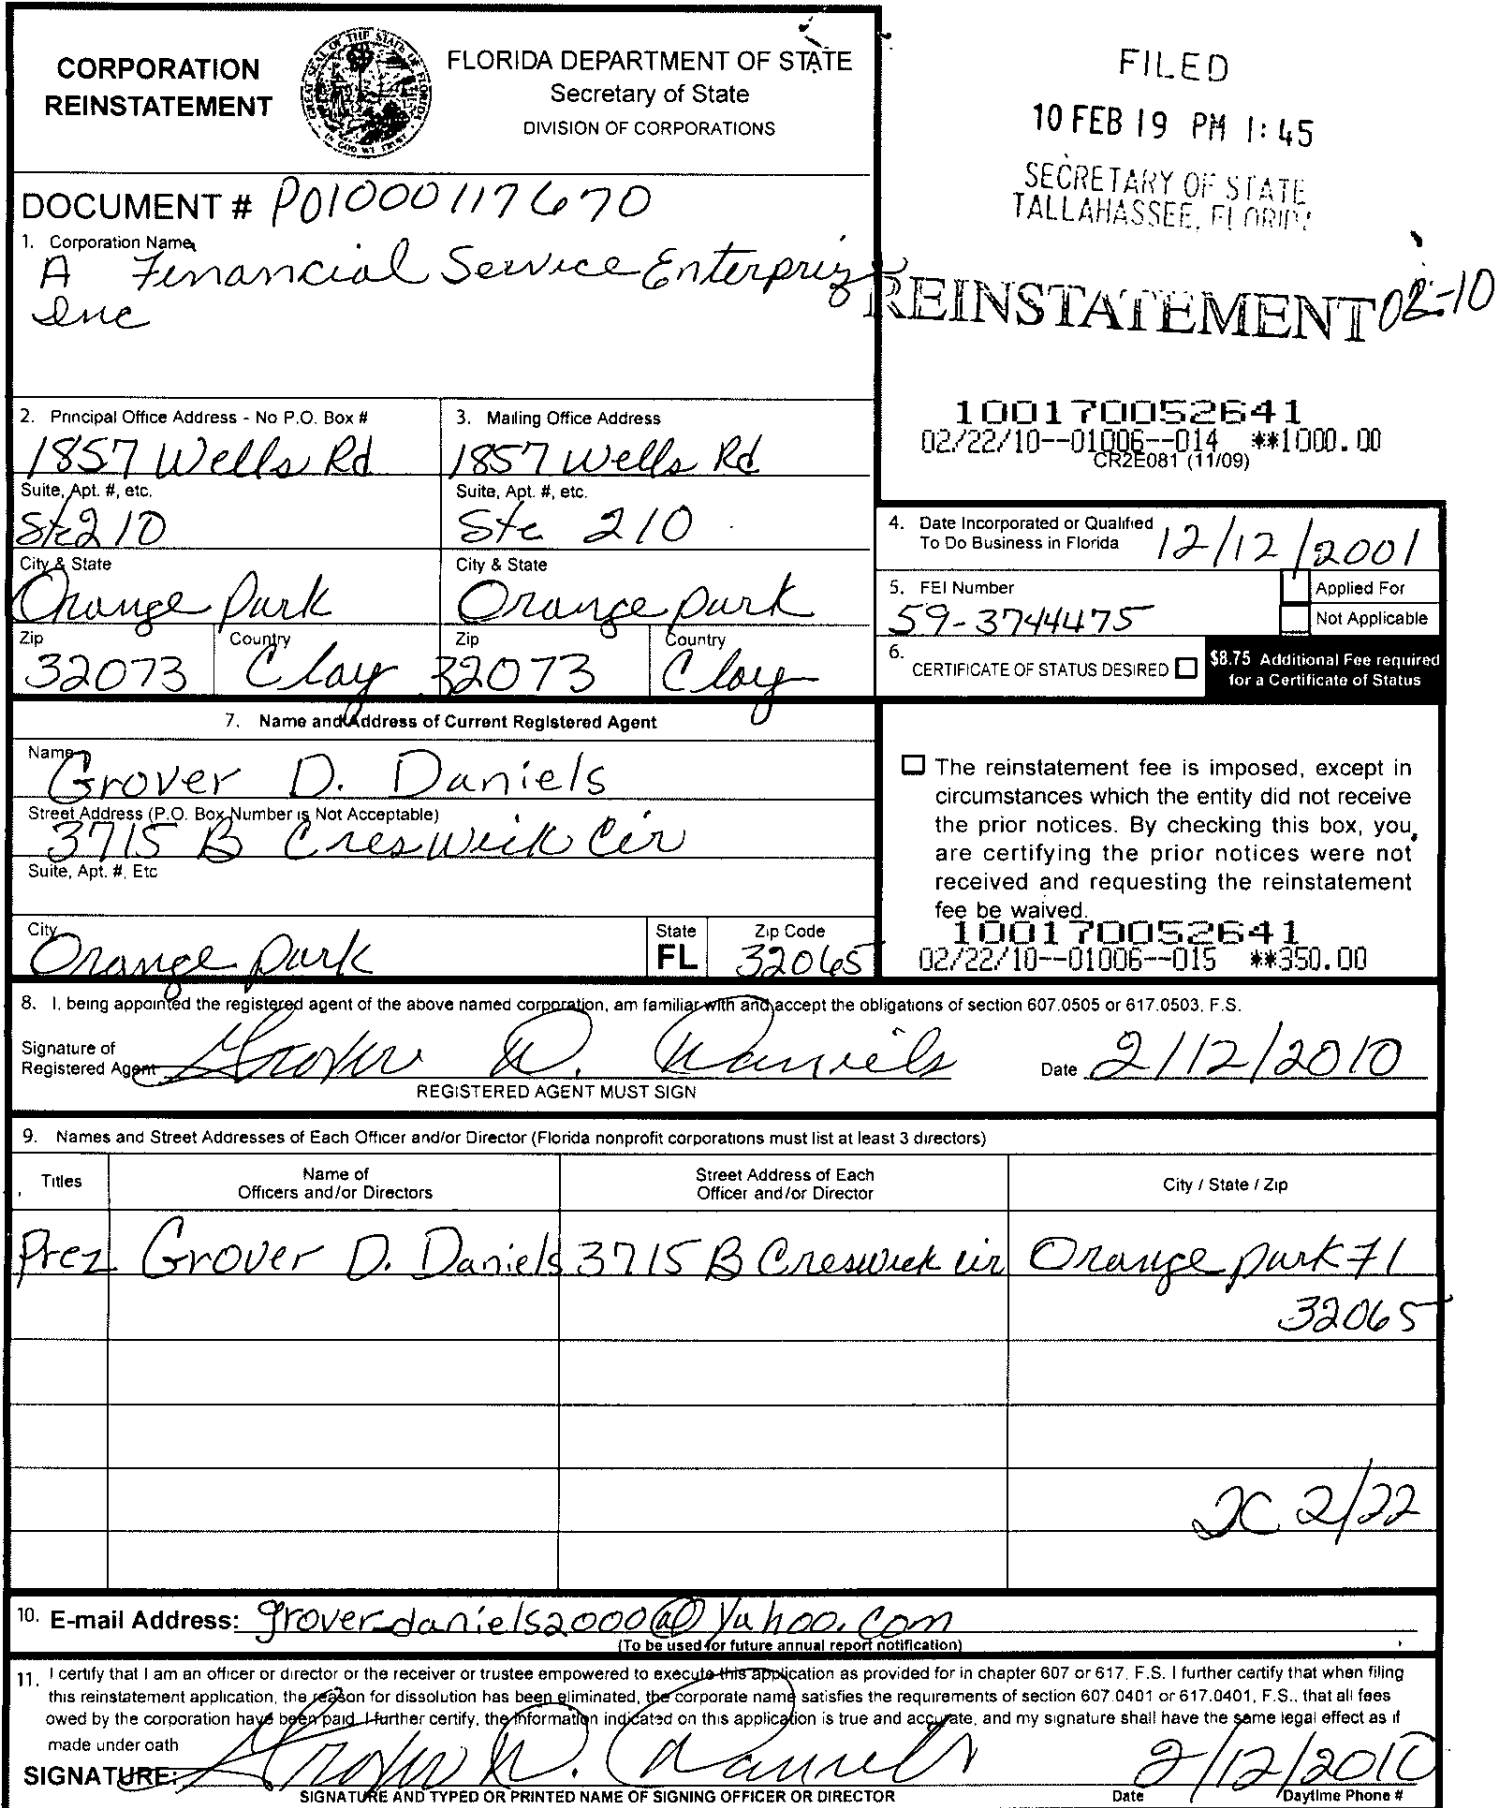 CORPORATION
REINSTATEMENT
FLORIDA DEPARTMENT OF STATE
Secretary of State
DIVISION OF CORPORATIONS
FILED
10 FEB 19 PM 1:45
SECRETARY OF STATE
TALLAHASSEE, FLORIDA
DOCUMENT # P01000117670
1. Corporation Name
A Financial Service Enterpriz
Inc
REINSTATEMENT 08-10
100170052641
02/22/10--01006--014 **1000.00
CR2E081 (11/09)
2. Principal Office Address - No P.O. Box #
1857 Wells Rd
Suite, Apt. #, etc.
Ste 210
City & State
Orange Park
Zip
32073
Country
Clay
3. Mailing Office Address
1857 Wells Rd
Suite, Apt. #, etc.
Ste 210
City & State
Orange park
Zip
32073
Country
Clay
4. Date Incorporated or Qualified
To Do Business in Florida
12/12/2001
5. FEI Number
59-3744475
Applied For
Not Applicable
6. CERTIFICATE OF STATUS DESIRED
$8.75 Additional Fee required
for a Certificate of Status
7. Name and Address of Current Registered Agent
Name
Grover D. Daniels
Street Address (P.O. Box Number is Not Acceptable)
3715 B Creswick Cir
Suite, Apt. #, Etc
City
Orange park
State
FL
Zip Code
32065
The reinstatement fee is imposed, except in
circumstances which the entity did not receive
the prior notices. By checking this box, you
are certifying the prior notices were not
received and requesting the reinstatement
fee be waived.
100170052641
02/22/10--01006--015 **350.00
8. I, being appointed the registered agent of the above named corporation, am familiar with and accept the obligations of section 607.0505 or 617.0503, F.S.
Signature of
Registered Agent
Grover D. Daniels
Date 2/12/2010
REGISTERED AGENT MUST SIGN
9. Names and Street Addresses of Each Officer and/or Director (Florida nonprofit corporations must list at least 3 directors)
Titles
Name of
Officers and/or Directors
Street Address of Each
Officer and/or Director
City / State / Zip
Prez Grover D. Daniels 3715 B Creswick cir Orange park Fl
32065
2/22
10. E-mail Address: grover_daniels2000@yahoo.com
(To be used for future annual report notification)
11. I certify that I am an officer or director or the receiver or trustee empowered to execute this application as provided for in chapter 607 or 617, F.S. I further certify that when filing
this reinstatement application, the reason for dissolution has been eliminated, the corporate name satisfies the requirements of section 607.0401 or 617.0401, F.S., that all fees
owed by the corporation have been paid. I further certify, the information indicated on this application is true and accurate, and my signature shall have the same legal effect as if
made under oath
SIGNATURE: Grover D. Daniels 2/12/2010
SIGNATURE AND TYPED OR PRINTED NAME OF SIGNING OFFICER OR DIRECTOR
Date
Daytime Phone #